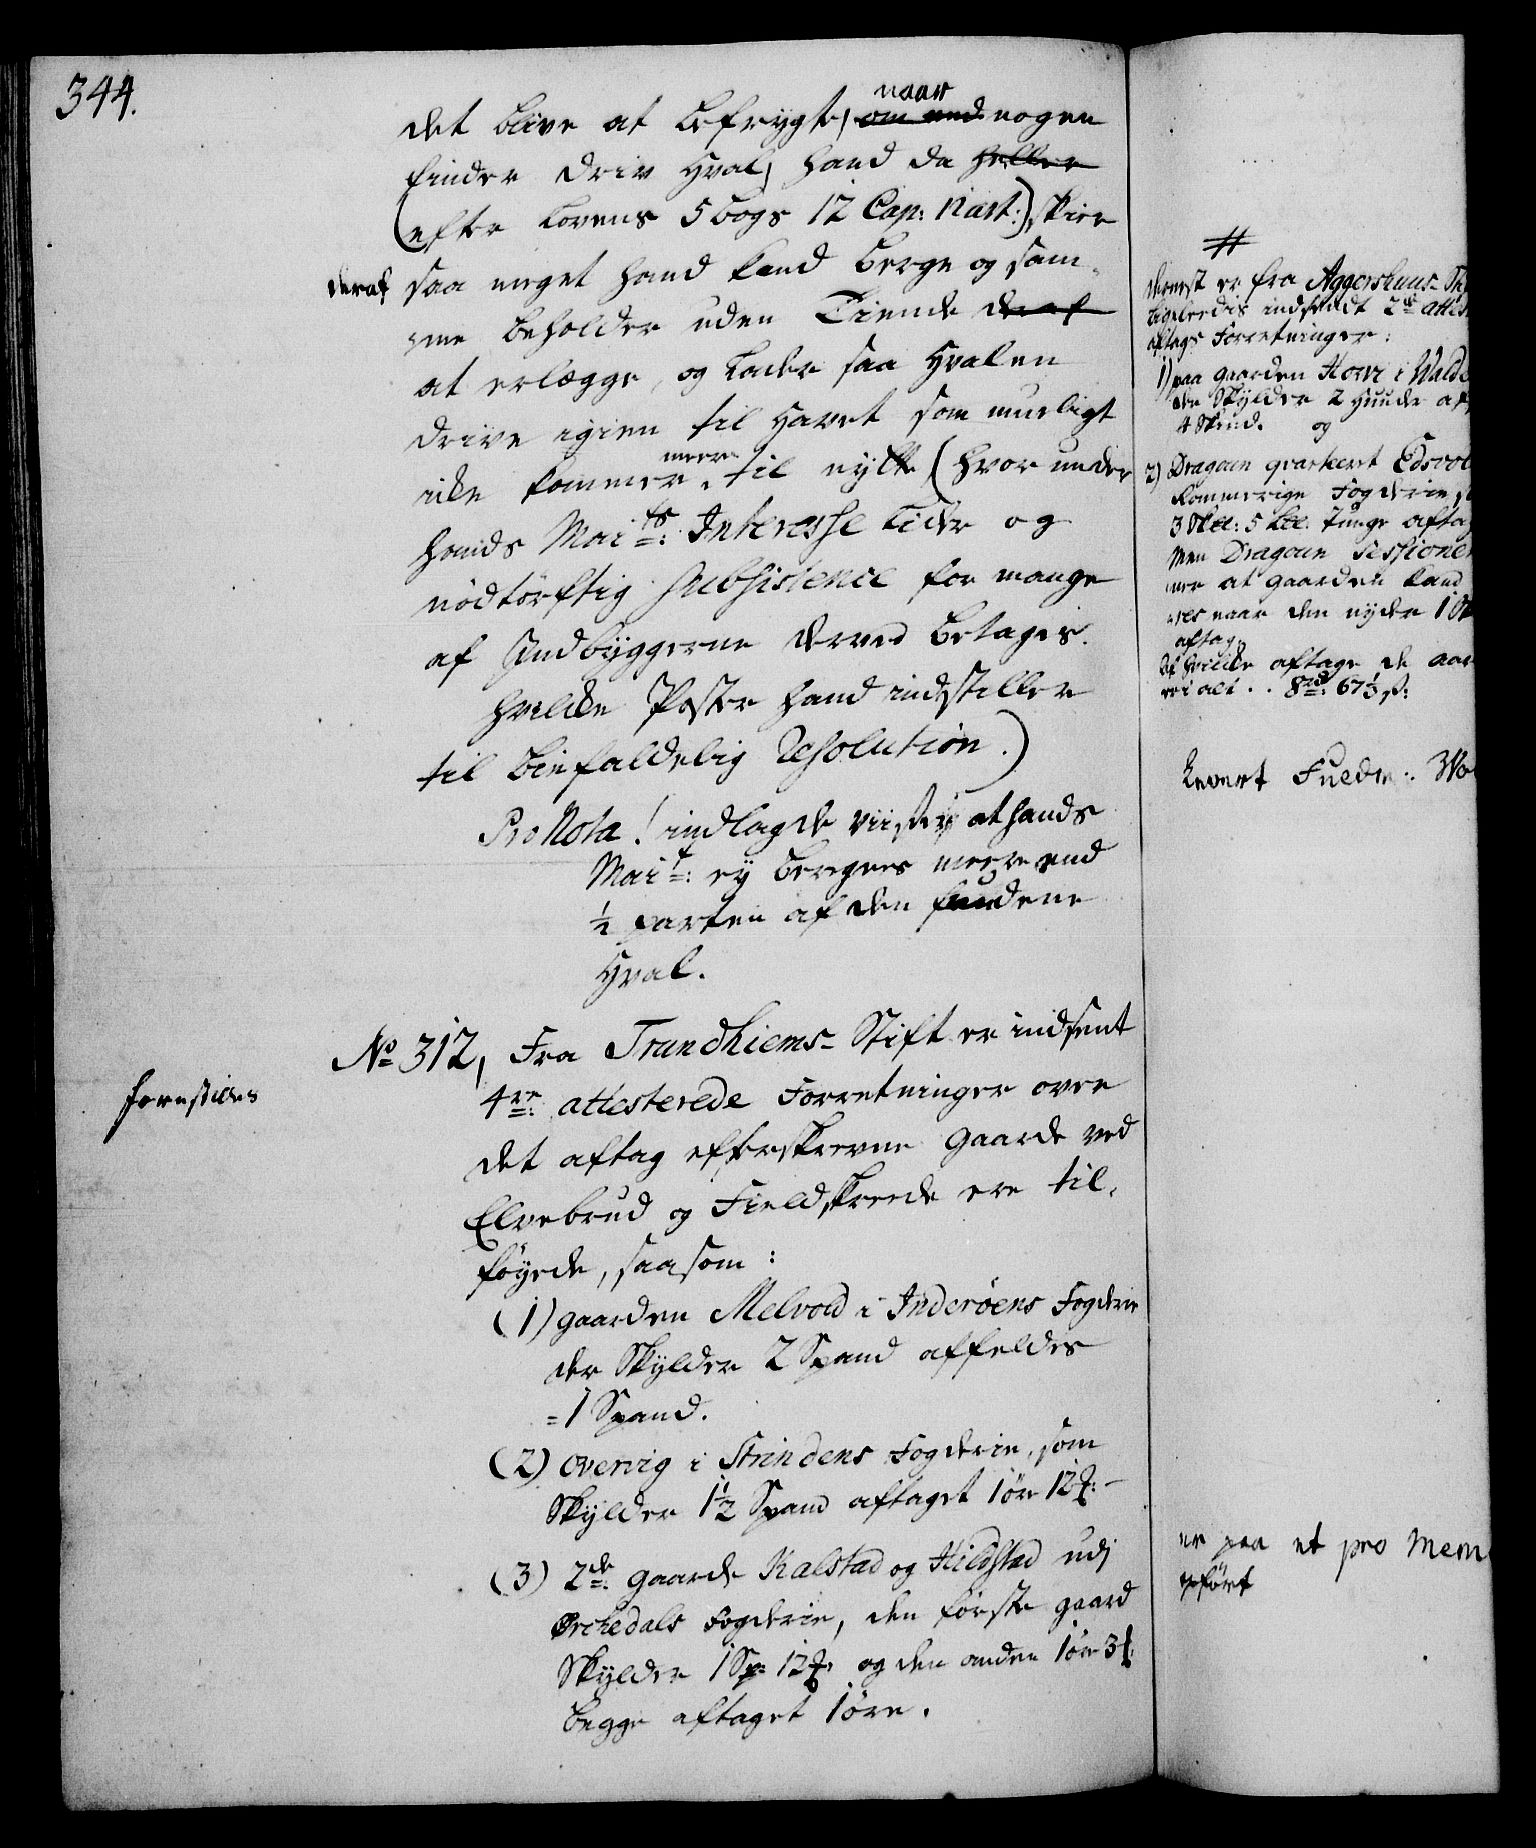 344.
det blive at befrygte, om end naar nogen
finder Driv Hval, hand da heller
(efter Lovens 5 bogs 12 Cap: 1 art:) skier
deraf saa meget hand kand berge og sam-
me beholder uden Tiende deraf
at erlægge, og Lader saa Hvalen
drive igien til Havet som mueligt
icke kommer meere til nytte (hvor under
hands Mai ts: Interesse Lider og
nödtörftig Subsistence for mange
af Indbyggerne derved betages.
hvilcke Poster hand indstiller
til biefaldelig Resolution.)
Pro Nota! indlagde viiser at hands
Mai t: ey berges meere end
½ parten af den fundene
Hval.
No 312, Fra Trundhiems- Stift er indsent
forestilles
4re: attesterede Forretninger over
det aftag efterskrevne Gaarde ved
Elvebrud og Fieldskreede ere til-
föyede, saasom:
(1) gaarden Melvold i Inderöens Fogderie
der Skylder 2 Spand affeldes
=1 Spand.
(2) Overvig i Strindens Fogderie, som
Skylder 1½ Spand aftaget 1 öre 12
(3) 2de: gaarde Kalstad og Hildstad udj
Orchedals Fogderie, den förste gaard
Skylder 1 Sp: 12 og den anden 1 öre 3
begge aftaget 1 öre.
#
dernest er fra Aggershuus-
ligeledis indsendt 2de
aftags Forretninger:
1) paa gaarden i
der Skylder 2 Huude
4 Skind. og
2) Dragoun qvarteret
Rommerige Fogderie
3 5 Tunge
Men Dragoun
at gaarden kand
naar den nyder 1
aftag.
aftage de
i alt .. 8 rd: 67½ s:
Levert
er paa et pro
opfört